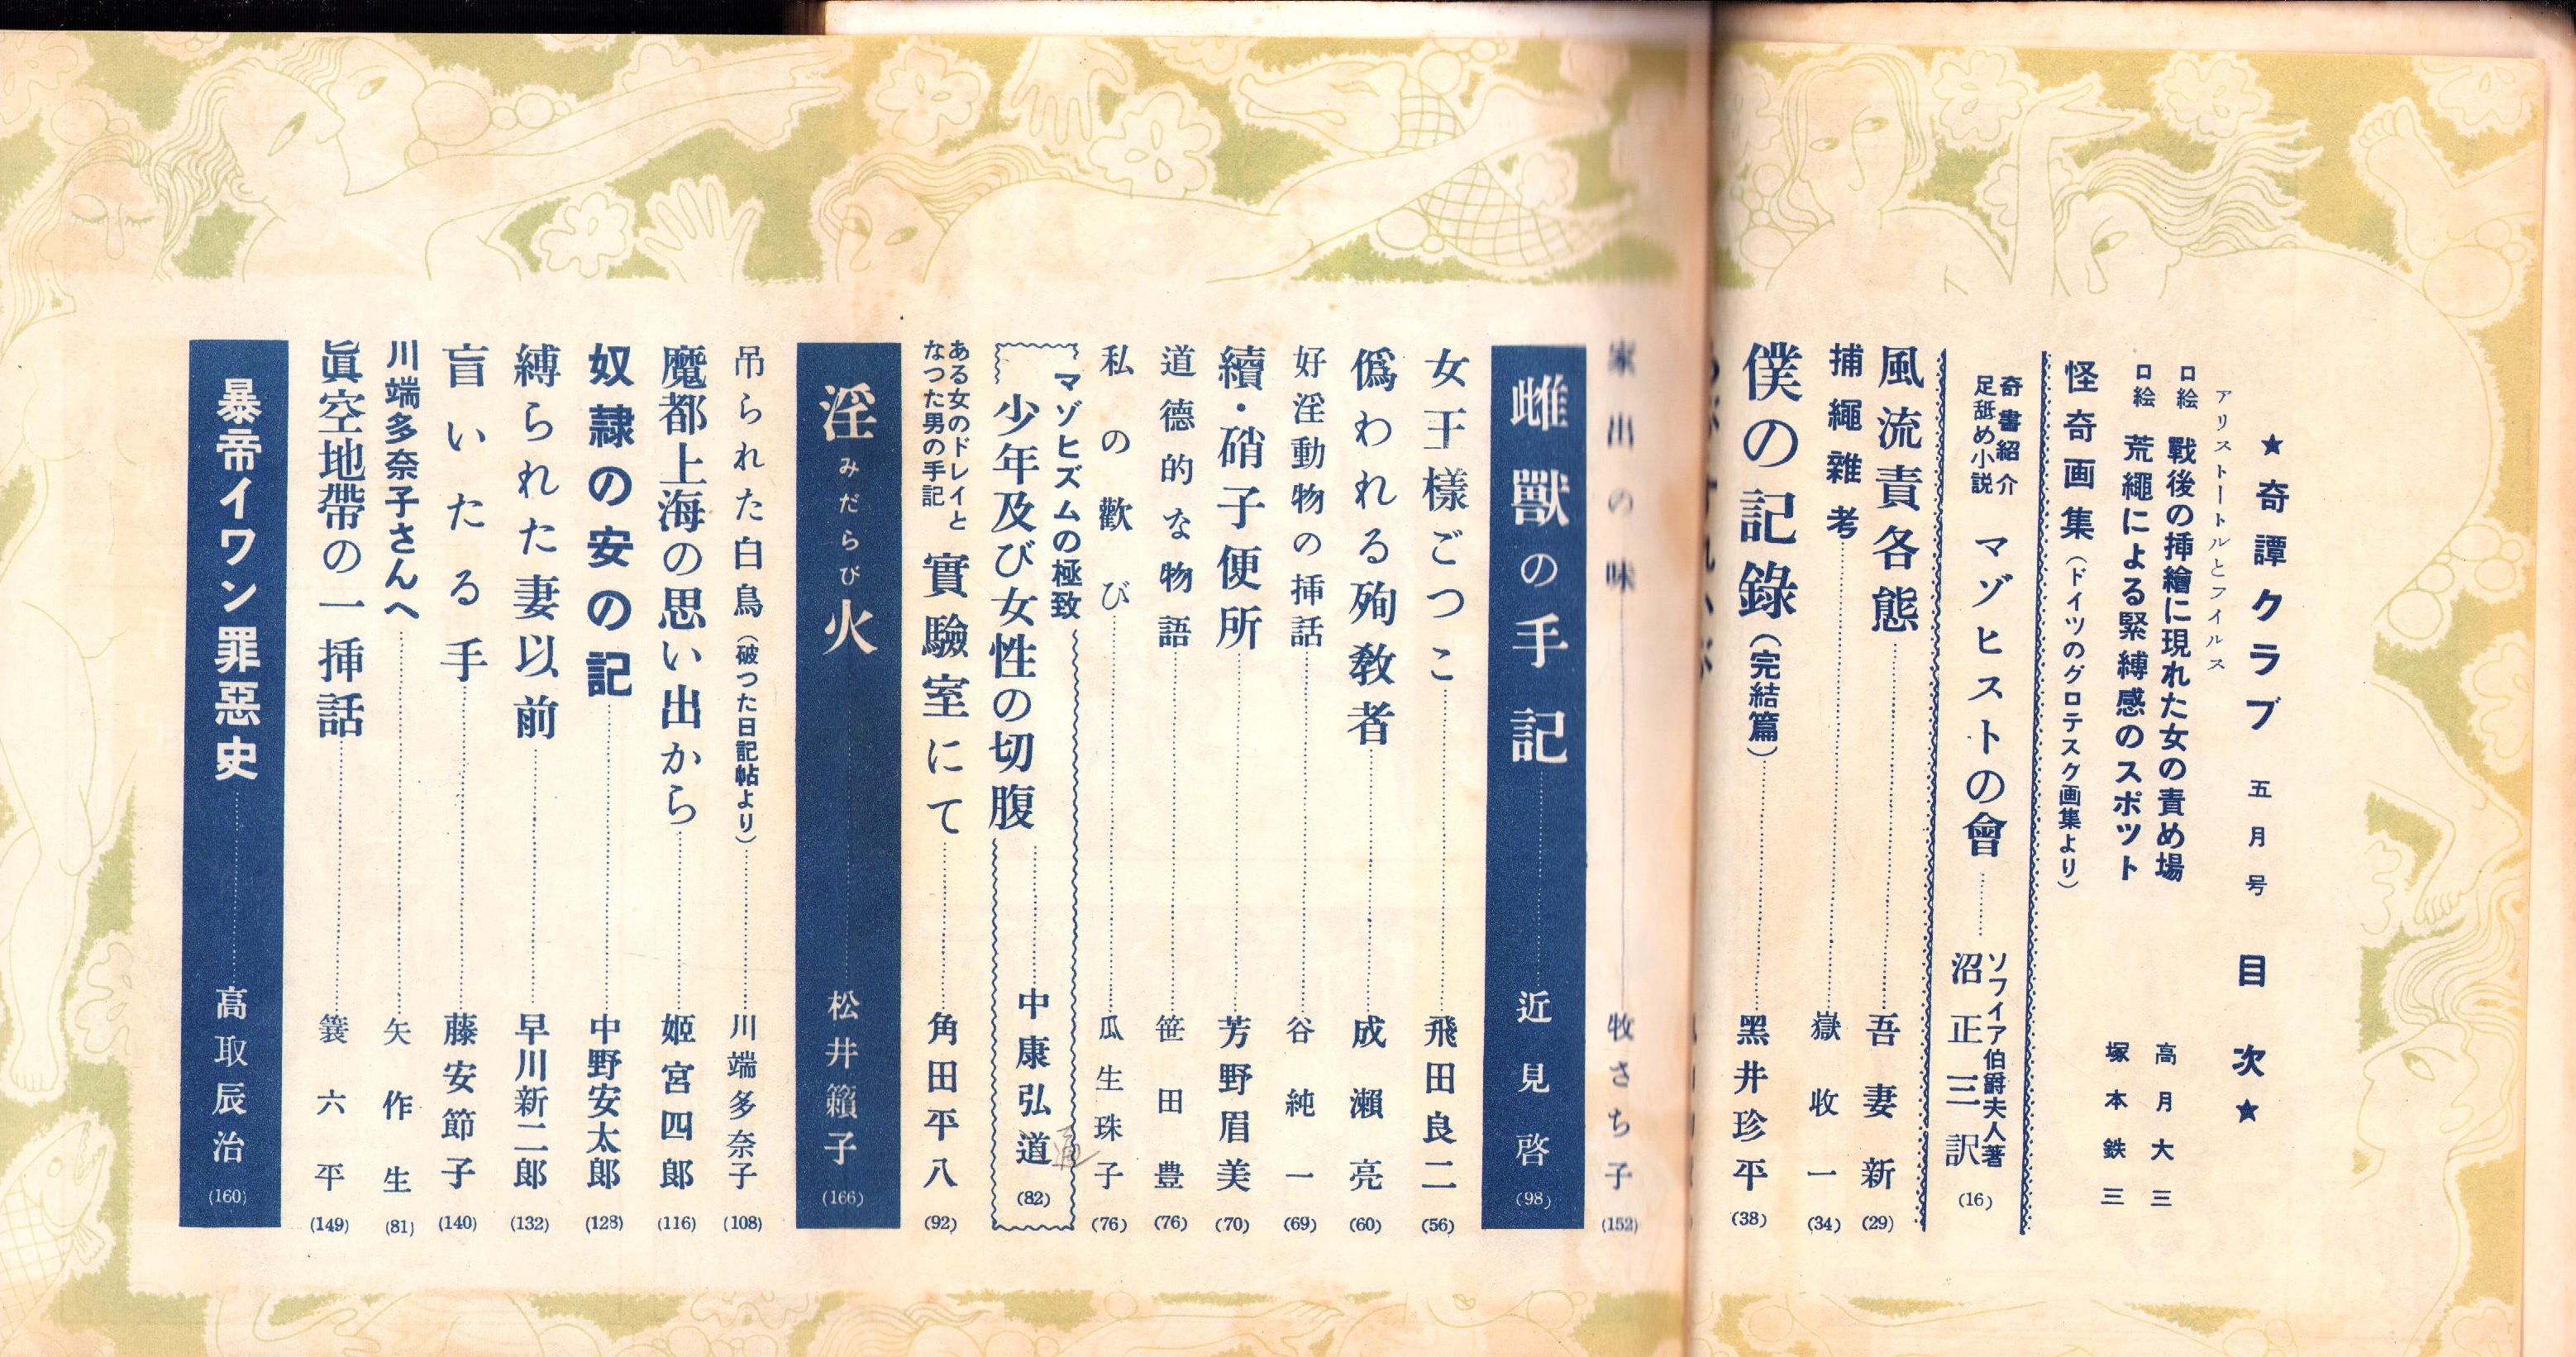 ★奇譚クラブ 五月号 目次★
アリストートルとフイルス
口絵 戰後の挿繪に現れた女の責め場 高月大三
口絵 荒繩による緊縛感のスポツト 塚本鉄三
怪奇画集(ドイツのグロテスク画集より)
奇書紹介
足舐め小説
マゾヒストの會 ソフイア伯爵夫人著
沼正三訳 (16)
風流責各態 吾妻新 (29)
捕繩雜考 嶽收一 (34)
僕の記錄(完結篇) 黑井珍平 (38)
家出の味 牧さち子 (152)
雌獸の手記 近見啓 (98)
女王樣ごつこ 飛田良二 (56)
僞われる殉教者 成瀨亮 (60)
好淫動物の挿話 谷純一 (69)
續・硝子便所 芳野眉美 (70)
道德的な物語 笹田豊 (76)
私の歡び 瓜生珠子 (76)
マゾヒズムの極致
少年及び女性の切腹 中康弘道 (82)
ある女のドレイと
なつた男の手記
實驗室にて 角田平八 (92)
淫みだらび火 松井籟子 (166)
吊られた白鳥(破つた日記帖より) 川端多奈子 (108)
魔都上海の思い出から 姬宮四郎 (116)
奴隷の安の記 中野安太郎 (128)
縛られた妻以前 早川新二郎 (132)
盲いたる手 藤安節子 (140)
川端多奈子さんへ 矢作生 (81)
眞空地帶の一挿話 簑六平 (149)
暴帝イワン罪惡史 高取辰治 (160)